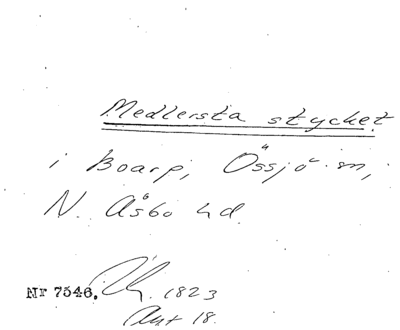 Medlersta stycket
i Boarp, Össjö sn,
N. Åsbo hd.
Nr 7546. 1823
Aut 18.